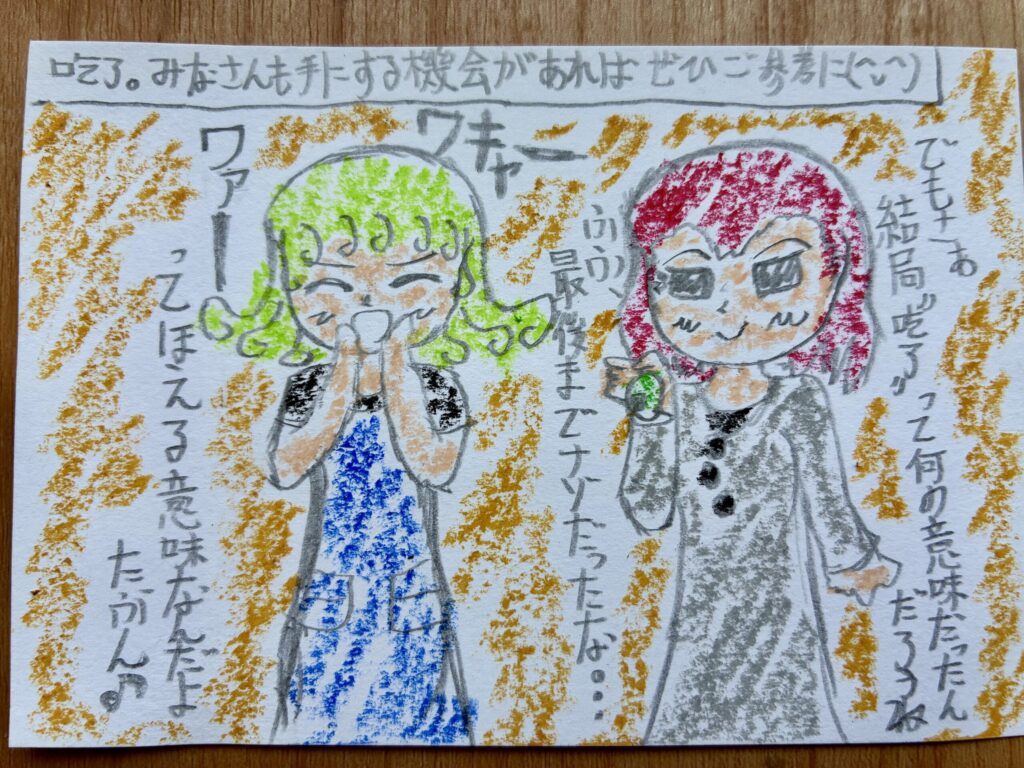 吃了。みなさんも手にする機会があればぜひご参考に(^^)
でもさぁ
結局“吃了”
って何の意味だったん
だろうね
ふふっ、
最後までナゾだったな…
ワキャー
ワァー
ってほえる意味なんだよ
たぶん♪